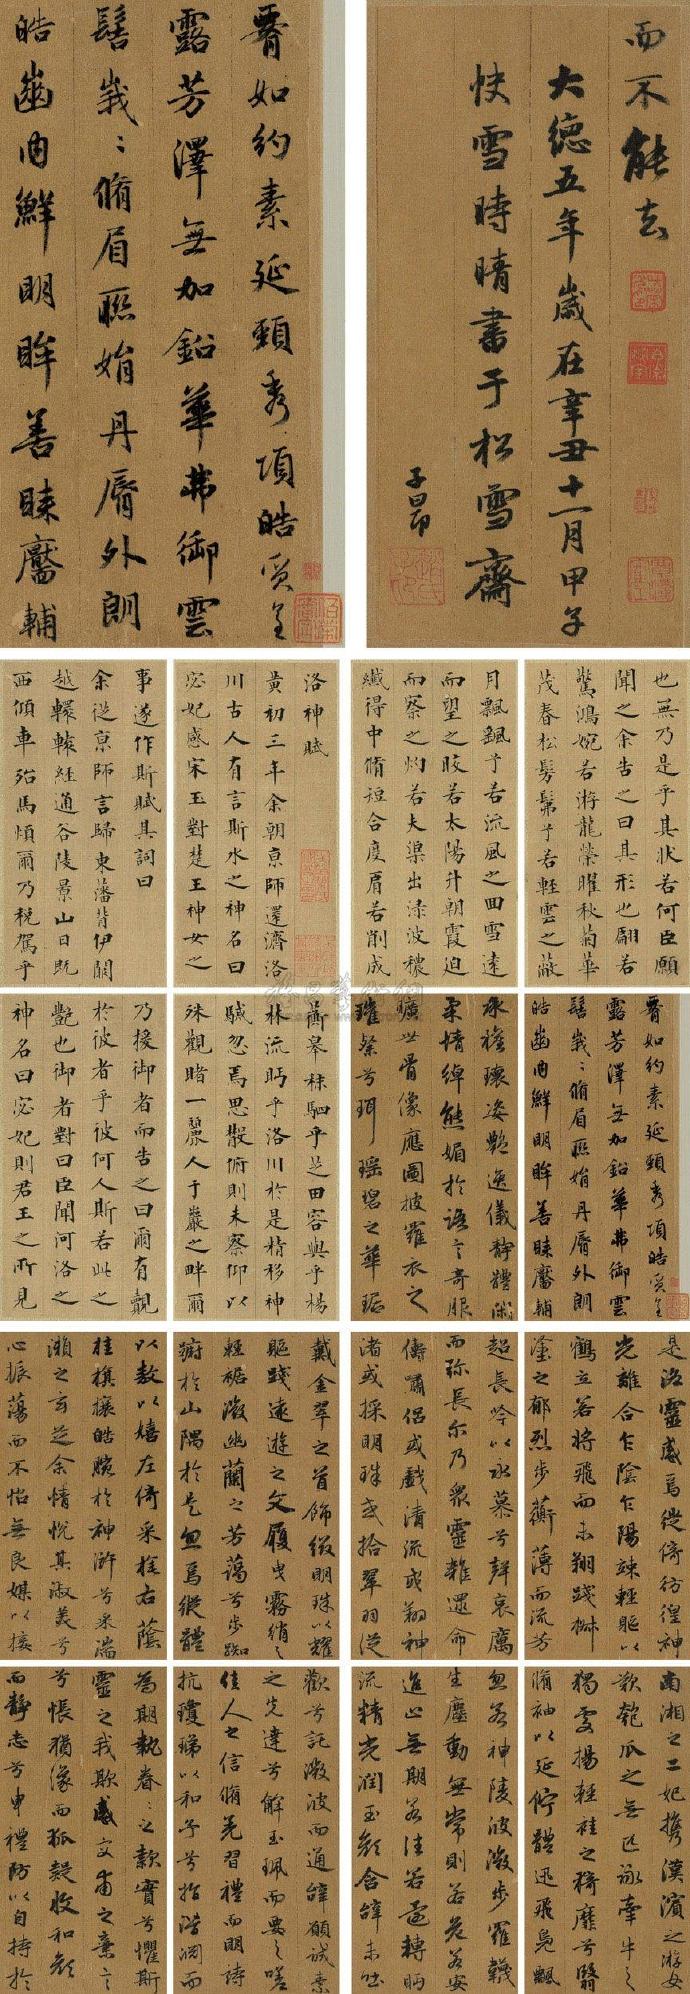 而不能去
大德五年歲在辛丑十一月甲子
快雪時晴書于松雪齋
子昂
腰如約素延頸秀項皓質呈
露芳澤無加鉛華弗御雲
髻峩〻脩眉聯娟丹脣外朗
皓齒内鮮明眸善睞靨輔
洛神賦
黃初三年余朝京師還濟洛
川古人有言斯水之神名曰
宓妃感宋玉對楚王神女之
事遂作斯賦其詞曰
余從京師言歸東藩背伊闕
越轘轅經通谷陵景山日既
西傾車殆馬煩爾乃稅駕乎
蘅皋秣駟乎芝田容與乎楊
林流眄乎洛川於是精移神
駭忽焉思散俯則未察仰以
殊觀睹一麗人于巖之畔爾
乃援御者而告之曰爾有覿
於彼者乎彼何人斯若此之
艷也御者對曰臣聞河洛之
神名曰宓妃則君王之所見
也無乃是乎其狀若何臣願
聞之余告之曰其形也翩若
驚鴻婉若游龍榮曜秋菊華
茂春松髣髴乎若輕雲之蔽
月飄飖乎若流風之回雪遠
而望之皎若太陽升朝霞迫
而察之灼若夫渠出淥波穠
纖得中脩短合度肩若削成
腰如約素延頸秀項皓質呈
露芳澤無加鉛華弗御雲
髻峩〻脩眉聯娟丹脣外朗
皓齒内鮮明眸善睞靨輔
承權瓌姿艷逸儀靜體閑
柔情綽態媚於語言奇服
曠世骨像應圖披羅衣之
璀粲兮珥瑤碧之華琚
戴金翠之首飾綴明珠以耀
軀踐遠遊之文履曳霧綃之
輕裾微幽蘭之芳藹兮步踟
躕於山隅於是忽焉縱體
以敖以嬉左倚采旄右蔭
桂旗攘皓腕於神滸兮采湍
瀨之玄芝余情悅其淑美兮
心振蕩而不怡無良媒以接
歡兮託微波而通辭願誠素
之先達兮解玉珮而要之嗟
佳人之信脩羌習禮而明詩
抗瓊珶以和予兮指潛淵而
為期執眷〻之款實兮懼斯
靈之我欺感交甫之棄言
兮悵猶豫而狐疑收和顏
而靜志兮申禮防以自持於
是洛靈感焉徙倚彷徨神
光離合乍陰乍陽竦輕軀以
鶴立若將飛而未翔踐椒
塗之郁烈步蘅薄而流芳
超長吟以永慕兮聲哀厲
而彌長爾乃眾靈雜遝命
儔嘯侶或戲清流或翔神
渚或採明珠或拾翠羽從
南湘之二妃攜漢濱之游女
歎匏瓜之無匹詠牽牛之
獨處揚輕袿之猗靡兮翳
脩袖以延佇體迅飛鳧飄
忽若神陵波微步羅韈
生塵動無常則若危若安
進止無期若往若還轉眄
流精光潤玉顏含辭未吐